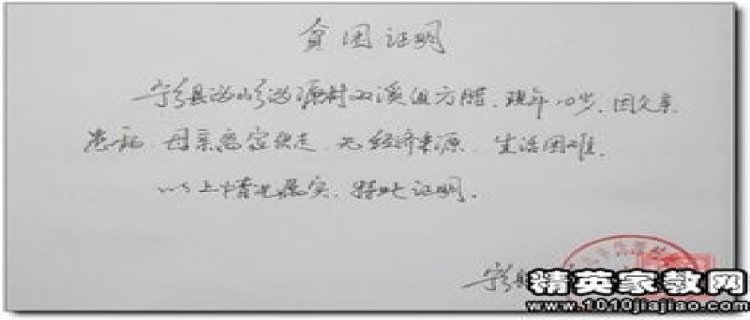 贫困证明
宁乡县沩山乡沩源村双溪组方腊、现年10岁、因父亲
患病、母亲离家出走、无经济来源、生活困难、
以上情况属实、特此证明。
宁乡县
精英家教网
www.1010jiajiao.com